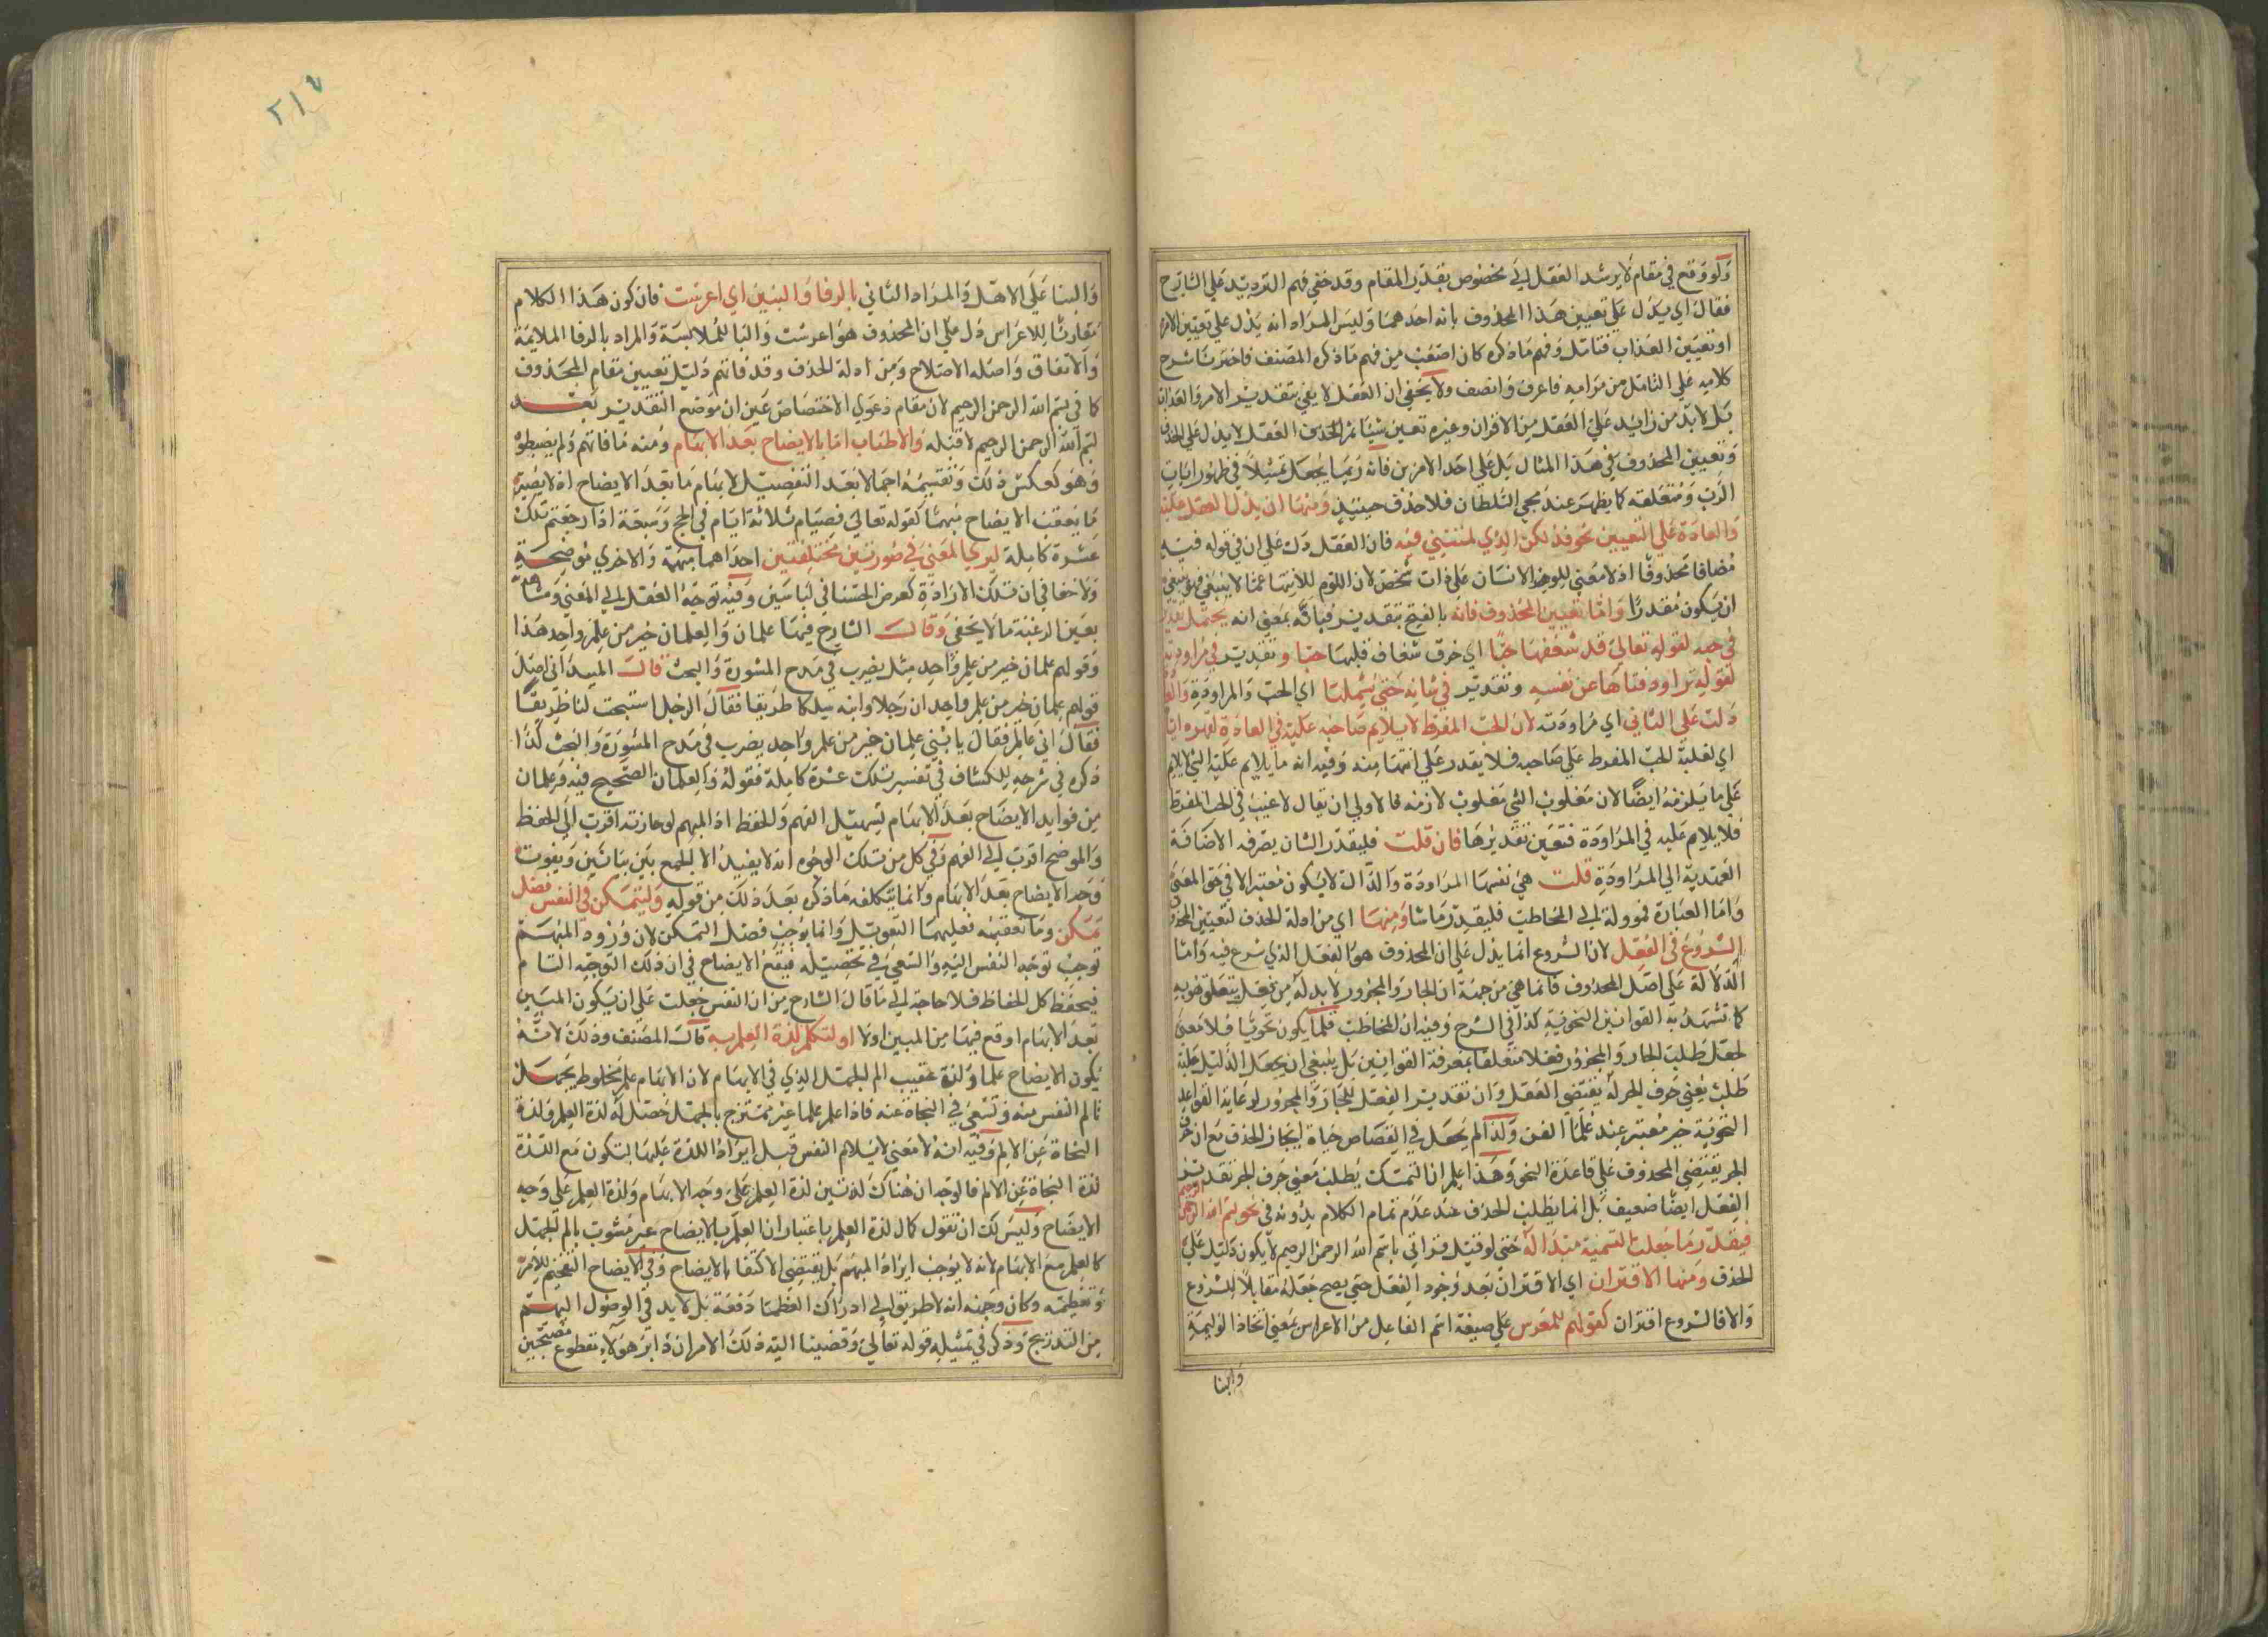 ولو وقع في مقام لا يرشد العقل الى مخصوص بقدر المقام وقد خفي فهم الترديد على الشارح
فقال اي يدل على تعيين هذا المحذوف بانه احدهما وليس المراد انه يدل على تعيين الامر
او تعيين العذاب فتامل وفهم ما ذكره كان اصعب من فهم ما ذكره المصنف فاخترنا شرح
كلامه على التامل من مرامه فاعرف وانصف ولا يخفى ان العقل لا يفي بتقدير الامر والعذاب
بل لا بد من زائد على العقل من الاقران وغيره تعين شيئا ثم العقل لا يدل على الحذف
وتعيين المحذوف في هذا المثال بل على احد الامرين فانه ربما يجعل تمثيلا في ظهور ايات
الرب ومتعلقه كما يظهر عند مجي السلطان فلا حذف حينئذ ومنها ان يدل العقل عليه
والعادة على التعيين نحو فذلكن الذي لمتنني فيه فان العقل دل على ان في قوله فيه
مضافا محذوفا اذ لا معنى للوم الانسان على ذات شخص لان اللوم للانسان عما لا ينبغي فينبغي
ان يكون مقدرا واما تعيين المحذوف فانه بالفتح بتقدير فبانه بمعنى انه يحتمل تقدير
في حبه لقوله تعالى قد شغفها حبا اي خرق شغاف قلبها حبا وتقدير في مراودته
لقوله تراود فتاها عن نفسه وتقدير في شانه حتى يشملها اي الحب والمراودة والعا
دلت على الثاني اي مراودته لان الحب المفرط لا يلام صاحبه عليه في العادة لقهره اياه
اي لغلبة الحب المفرط على صاحبه فلا يقدر على انتهائه منه وفيه انه ما يلام عليه الشي لا يلام
على ما يلزمه ايضا لان مغلوب الشي مغلوب لازمه فالاولى ان يقال لا عيب في الحب المفرط
فلا يلام عليه في المراودة فتعين تقديرها فان قلت فليقدر الشان بصرفه الاضافة
العهدية الى المراودة قلت هي نفسها المراودة والدال لا يكون معتبرا لا في حق المعنى
واما العبارة فموولة الى المخاطب فليقدر ما شا ومنها اي من ادلة الحذف لتعيين المحذوف
الشروع في الفعل لان الشروع انما يدل على ان المحذوف هو الفعل الذي شرع فيه واما
الدلالة على اصل المحذوف فانما هي من جهة ان الجار والمجرور لا بد له من فعل يتعلق هو به
كما تشهد به القوانين النحوية كذا في الشرح وفيه ان المخاطب قلما يكون نحويا فلا معنى
لجعل طلب الجار والمجرور فعلا متعلقا بمعرفة القوانين بل ينبغي ان يجعل الدليل عليه
طلب معنى حرف الجر له يقتضي العقل وان تقدير الفعل للجار والمجرور لرعاية القواعد
النحوية خير معتبر عند علماء الفن ولذا لم يجعل في القصاص حياة ايجاز الحذف مع ان حرف
الجر يقتضي المحذوف على قاعدة النحو وهذا اعلم ان التمسك بطلب معنى حرف الجر تقدير
الفعل ايضا ضعيف بل انما يطلب الحذف عند عدم تمام الكلام بدونه في نحو بسم الله الرحمن الرحيم
فيقدر ما جعلت التسمية مبتدأ له حتى لو قيل قراتي باسم الله الرحمن الرحيم لا يكون دليل على
الحذف ومنها الاقتران اي الاقتران بعد وجود الفعل حتى يصح جعله مقابلا للشروع
والا فالشروع اقتران كقولهم للمعرس على صيغة اسم الفاعل من الاعراس بمعنى اتخاذ الوليمة
وابنا
والبنا على الاهل والمراد الثاني بالرفا والبنين اي اعرست فان كون هذا الكلام
مقارنا للاعراس دل على ان المحذوف هو اعرست والبا للملابسة والمراد بالرفا الملايمة
والاتفاق واصله الاصلاح ومن ادلة الحذف وقد فاتهم دليل تعيين مقام المحذوف
كما في بسم الله الرحمن الرحيم لان مقام دعوى الاختصاص عين ان موضع التقدير بعد
بسم الله الرحمن الرحيم لا قبله والاطناب اما بالايضاح بعد الابهام ومنه ما فاتهم ولم يضبطوه
وهو كعكس ذلك وتقسيمه اجمالا بعد التفصيل لابهام ما بعد الايضاح اذ لا يصير
ما يعقب الايضاح مبهما كقوله تعالى فصيام ثلاثة ايام في الحج وسبعة اذا رجعتم تلك
عشرة كاملة ليرى المعنى في صورتين مختلفتين احداهما مبهمة والاخرى موضحة
ولا خفا في ان تلك الارادة كعرض الحسنا في لباسين وفيه توجه العقل الى المعنى
بعين الرغبة ما لا يخفى وقال الشارح فيها علمان والعلمان خير من علم واحد هذا
وقولهم علمان خير من علم واحد مثل يضرب في مدح المشورة والبحث قال الميداني اصل
قولهم علمان خير من علم واحد ان رجلا وابنه سلكا طريقا فقال الرجل استبحث لنا طريقا
فقال اني عالم فقال يا بني علمان خير من علم واحد يضرب في مدح المشورة والبحث كذا
ذكره في شرحه للكشاف في تفسير تلك عشرة كاملة فقوله والعلمان الصحيح فيه وعلمان
من فوايد الايضاح بعد الابهام تسهيل الفهم والحفظ اذ المبهم لوجازته اقرب الى الحفظ
والموضح اقرب الى الفهم وفي كل من تلك الوجوه انه لا يفيد الا الجمع بين بيانين ويفوت
وجه الايضاح بعد الابهام وانما يتكلفه ما ذكره بعد ذلك من قوله وليتمكن في النفس فضل
تمكن وما تعقبه فعليهما التعويل وانما يوجب فضل التمكن لان ورود المبهم
توجب توجه النفس اليه والسعي في تحصيله فيقع الايضاح في ان ذلك التوجه التام
فيحفظ كل الحفاظ فلا حاجة الى ما قال الشارح من ان النفس جعلت على ان يكون المبين
بعد الابهام اوقع فيها من المبين اولا او لتكمل لذة العلم به قال المصنف وذلك لانه
يكون الايضاح علما ولذة عقيب الم الجهل الذي في الابهام لان الابهام علم مخلوط بجهل
تالم النفس منه وتسعى في النجاة عنه فاذا علم علما غير ممتزج بالجهل حصل له لذة العلم ولذة
النجاة عن الالم وفيه انه لا معنى لايلام النفس قبل ايراد اللذة عليها لتكون مع اللذة
لذة النجاة عن الالم فالوجه ان هناك لذتين لذة العلم على وجه الابهام ولذة العلم على وجه
الايضاح وليس لك ان تقول كمال لذة العلم باعتبار ان العلم بالايضاح غير مشوب بالم الجهل
كالعلم مع الابهام لانه لا يوجب ايراد المبهم بل يقتضي الاكتفا بالايضاح وفي الايضاح التفخيم للامر
وتعظيمه وكان وجهه انه لا طريق الى ادراك العظما دفعة بل لا بد في الوصول اليهم
من التدريج وذكر في تمثيله قوله تعالى وقضينا اليه ذلك الامر ان دابر هؤلاء مقطوع مصبحين